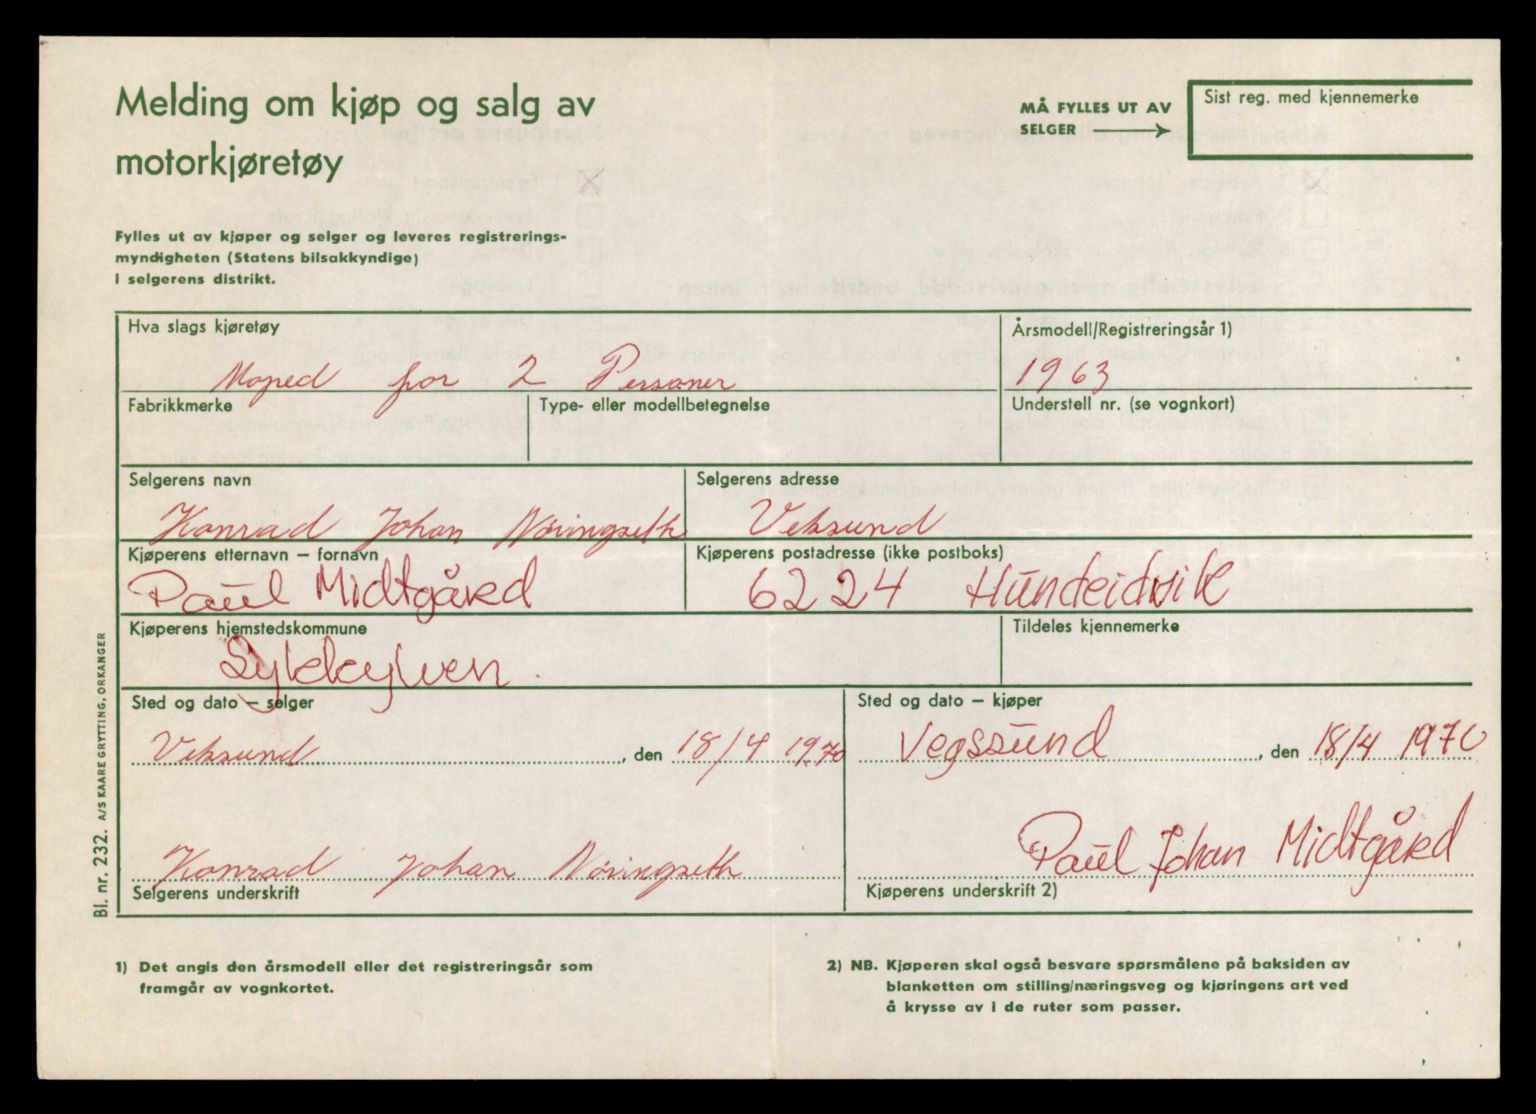 Melding om kjøp og salg av
motorkjøretøy
MÅ FYLLES UT AV
SELGER
Sist reg. med kjennemerke
Fylles ut av kjøper og selger og leveres registrerings-
myndigheten (Statens bilsakkyndige)
i selgerens distrikt.
Hva slags kjøretøy
Årsmodell/Registreringsår 1)
Moped for 2 Personer
1963
Fabrikkmerke
Type- eller modellbetegnelse
Understell nr. (se vognkort)
Selgerens navn
Selgerens adresse
Konrad Johan Nøringseth
Veksund
Kjøperens etternavn – fornavn
Kjøperens postadresse (ikke postboks)
Paul Midtgård
6224 Hundeidvik
Kjøperens hjemstedskommune
Tildeles kjennemerke
Sykkylven.
Sted og dato – selger
Sted og dato – kjøper
Veksund, den 18/4 1970
Vegsund, den 18/4 1970
Konrad Johan Nøringseth
Paul Johan Midtgård
Selgerens underskrift
Kjøperens underskrift 2)
Bl. nr. 232. A/S KAARE GRYTTING, ORKANGER
1) Det angis den årsmodell eller det registreringsår som
framgår av vognkortet.
2) NB. Kjøperen skal også besvare spørsmålene på baksiden av
blanketten om stilling/næringsveg og kjøringens art ved
å krysse av i de ruter som passer.